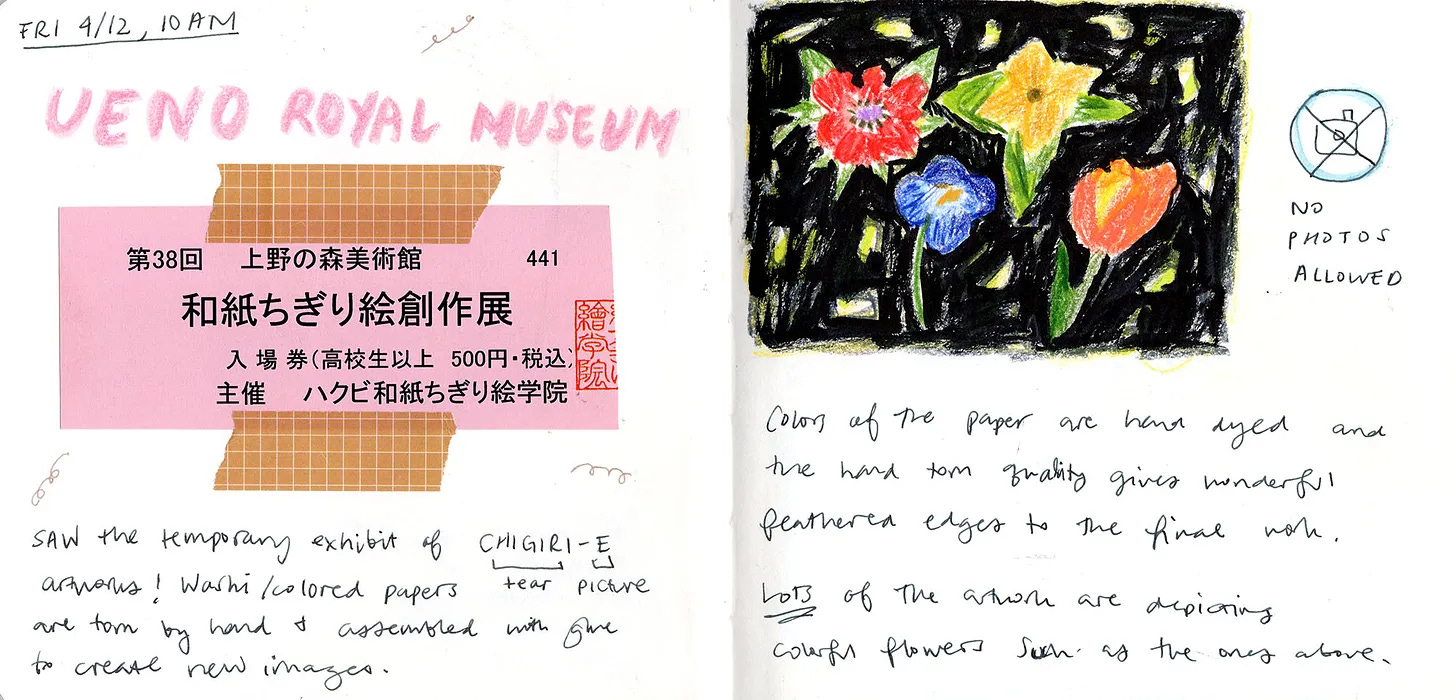 FRI 4/12, 10 AM
UENO ROYAL MUSEUM
第38回 上野の森美術館 441
和紙ちぎり絵創作展
入場券(高校生以上 500円・税込)
主催 ハクビ和紙ちぎり絵学院
繪学院
SAW the temporary exhibit of CHIGIRI-E
tear picture
artworks! Washi/colored papers
are torn by hand & assembled with glue
to create new images.
NO
PHOTOS
ALLOWED
Colors of the paper are hand dyed and
the hand torn quality gives wonderful
feathered edges to the final work.
LOTS of the artwork are depicting
colorful flowers such as the ones above.